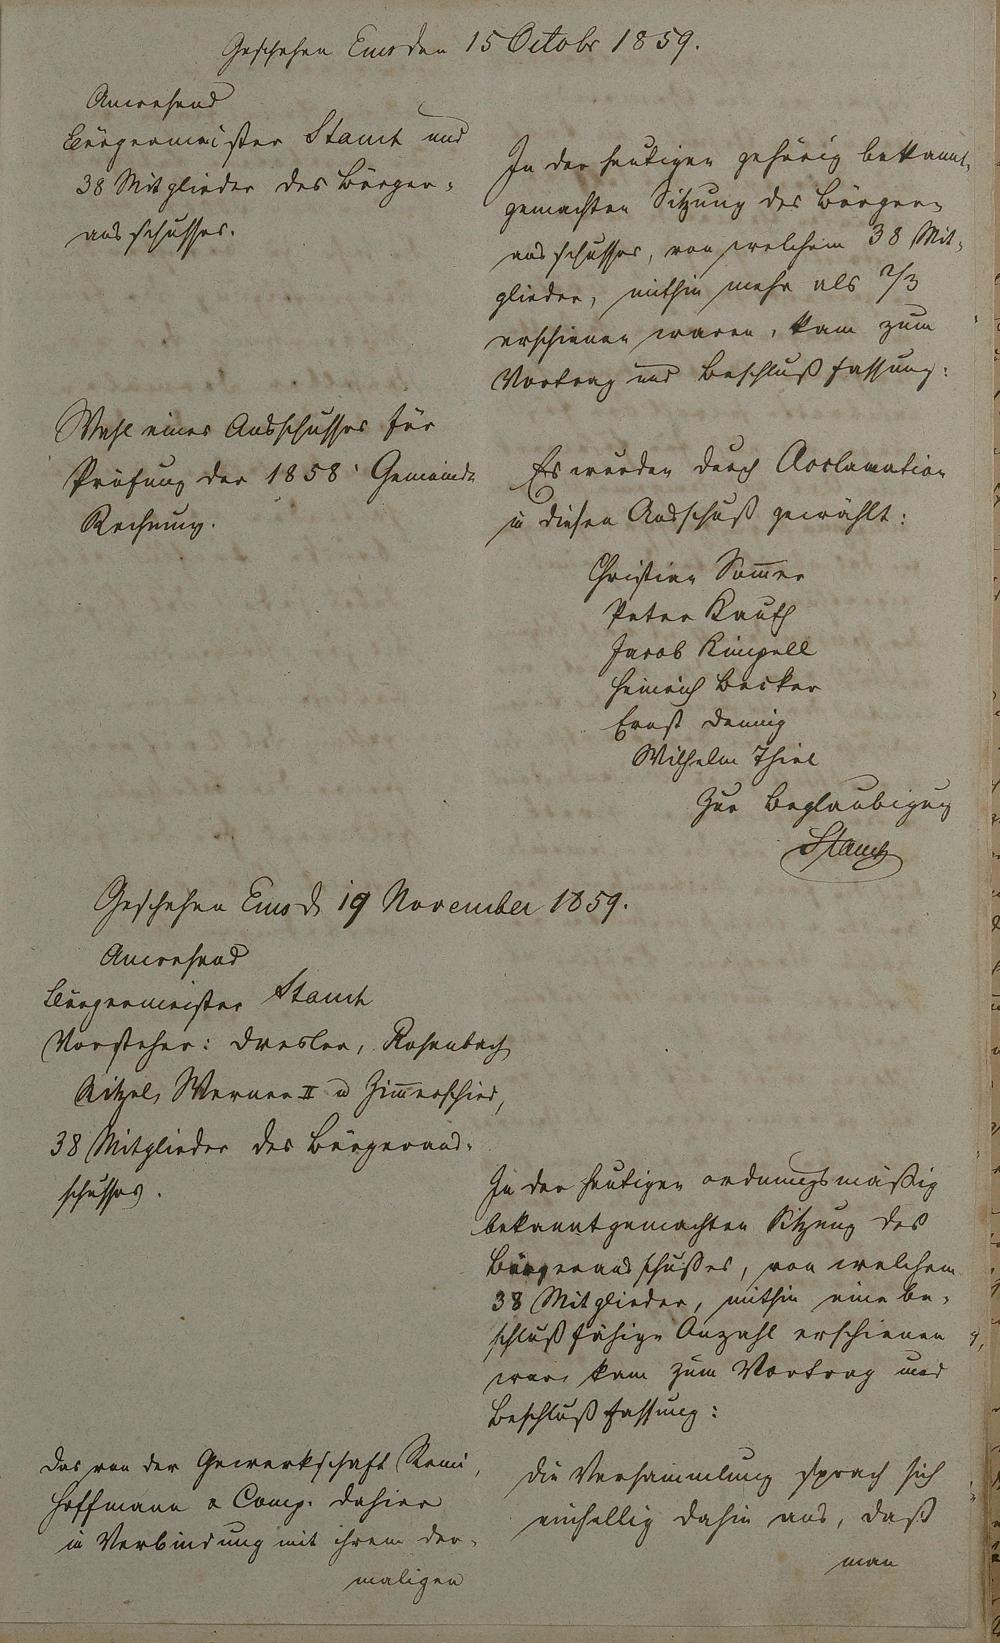 Geschehen Ems den 15 Octobr 1859.
Anwesend
Bürgermeister Stamm und
38 Mitglieder des Bürger-
ausschusses.
In der heutigen gehörig bekannt
gemachten Sitzung des Bürger-
ausschusses, von welchem 38 Mit-
glieder, mithin mehr als 2/3
erschienen waren, kam zum
Vortrag und Beschlußfassung:
Wahl eines Ausschusses für
Prüfung der 1858r Gemeinde
Rechnung.
Es wurden durch Acclamation
in diesen Ausschuß gewählt:
Christian Som̅er
Peter Kauth
Jacob Kimpell
Heinrich Becker
Ernst Demig
Wilhelm Thiel
Zur Beglaubigung
Geschehen Ems d 19 November 1859.
Anwesend
Bürgermeister
Vorsteher: Dresler, Rosenbach
Kitzel, Werner II u Zim̅erschied,
38 Mitglieder des Bürgeraus-
schusses.
In der heutigen ordnungsmäßig
bekanntgemachten Sitzung des
Bürgerausschußes, von welchem
38 Mitglieder, mithin eine be-
schlußfähige Anzahl erschienen
war, kam zum Vortrag und
Beschlußfassung:
Das von der Gewerkschaft Remi,
Hoffmann & Comp. dahier
in Verbindung mit ihrem der-
maligen
Die Versammlung sprach sich
einhellig dahin aus, daß
man